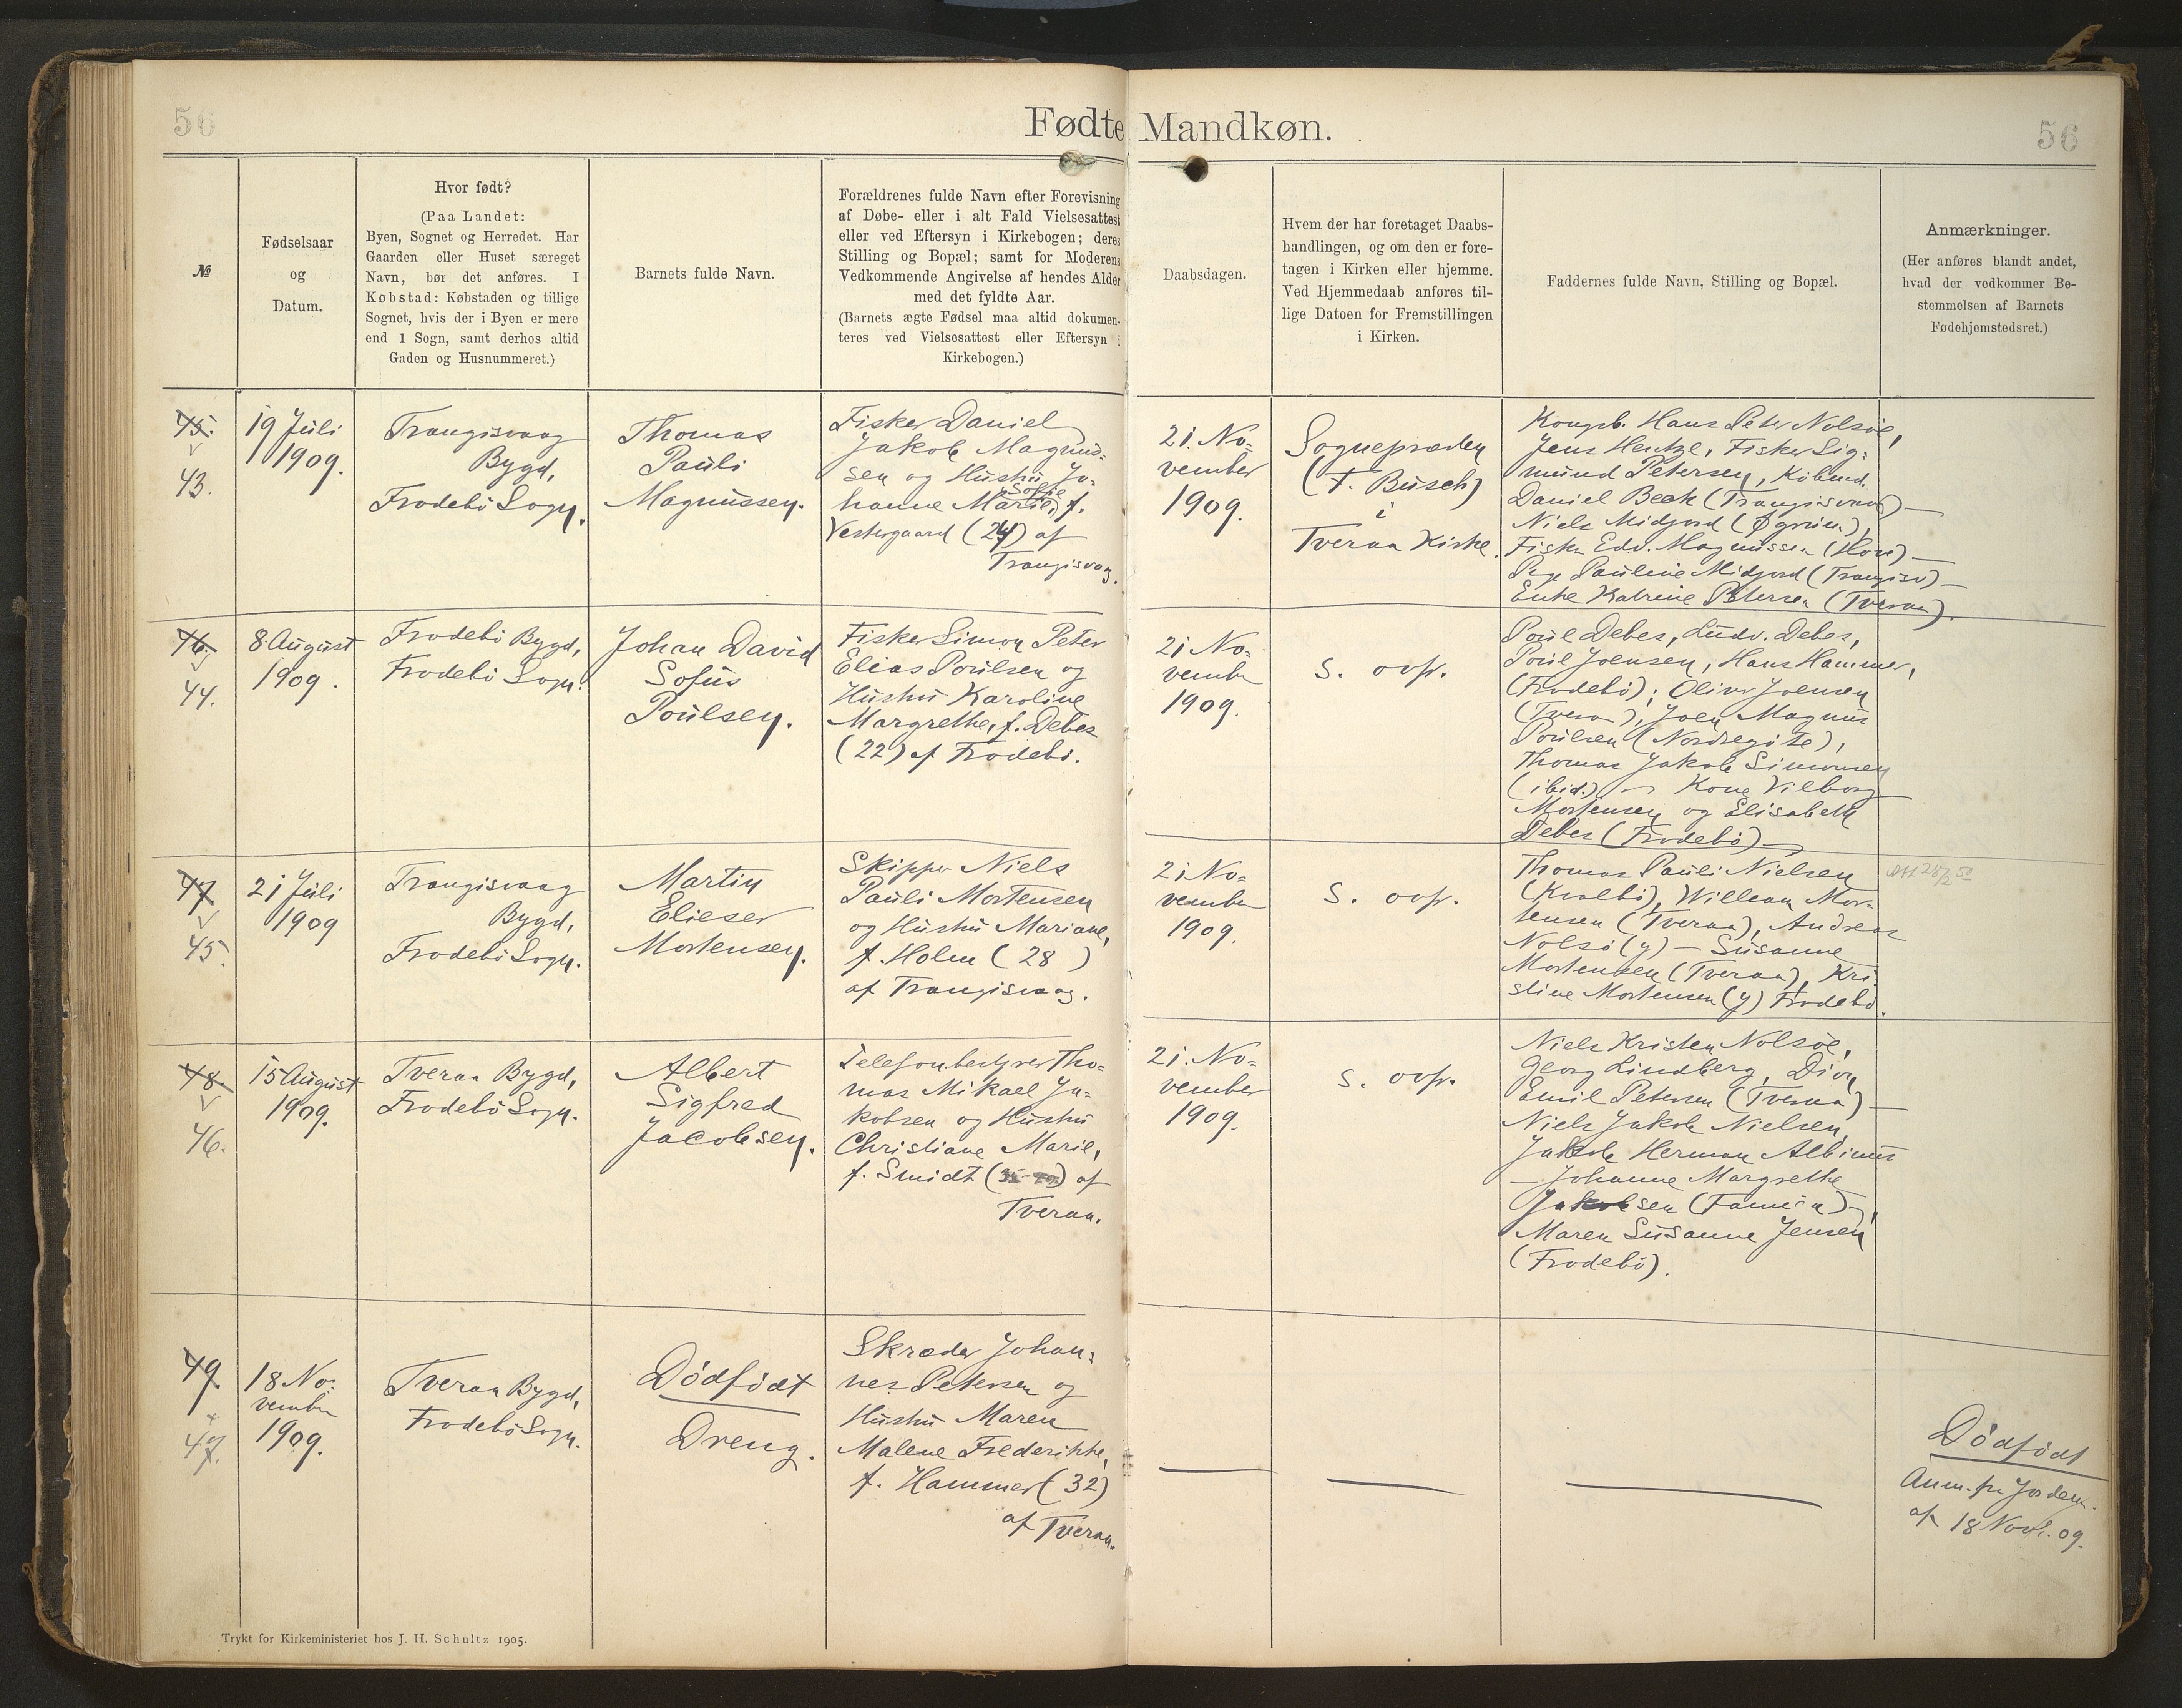 56
Fødte Mandkøn.
56
№
Fødselsaar
og
Datum.
Hvor født?
(Paa Landet:
Byen, Sognet og Herredet. Har
Gaarden eller Huset særeget
Navn, bør det anføres. I
Købstad: Købstaden og tillige
Sognet, hvis der i Byen er mere
end 1 Sogn, samt derhos altid
Gaden og Husnummeret.)
Barnets fulde Navn.
Forældrenes fulde Navn efter Forevisning
af Døbe- eller i alt Fald Vielsesattest
eller ved Eftersyn i Kirkebogen; deres
Stilling og Bopæl; samt for Moderens
Vedkommende Angivelse af hendes Alder
med det fyldte Aar.
(Barnets ægte Fødsel maa altid dokumen-
teres ved Vielsesattest eller Eftersyn i
Kirkebogen.)
Daabsdagen.
Hvem der har foretaget Daabs-
handlingen, og om den er fore-
tagen i Kirken eller hjemme.
Ved Hjemmedaab anføres til-
lige Datoen for Fremstillingen
i Kirken.
Faddernes fulde Navn, Stilling og Bopæl.
Anmærkninger.
(Her anføres blandt andet,
hvad der vedkommer Be-
stemmelsen af Barnets
Fødehjemstedsret.)
45.
43.
19 Juli
1909.
Trangisvaag
Bygd,
Frodebö Sogn.
Thomas
Pauli
Magnussen.
Fisker Daniel
Jakob Magnus-
sen og Hustru Jo-
hanne Marie Sofie, f.
Vestergaard (24) af
Trangisvaag.
21. No-
vember
1909.
Sognepræsten
(F. Busch)
i
Tveraa Kirke.
Kongsb. Hans Peter Nolsøe,
Jens Hentze, Fisker Sig-
mund Petersen, Købmd.
Daniel Beck (Trangisvaag) —
Niels Midjord (Øgrim.),
Fisker Edv. Magnussen (Hove) —
Pige Pauline Midjord (Trangisv) —
Enke Katrine Petersen (Tveraa).
46.
44.
8. August
1909.
Frodebö Bygd,
Frodebö Sogn.
Johan David
Sofus
Poulsen.
Fisker Simon Peter
Elias Poulsen og
Hustru Karoline
Margrethe, f. Debes
(22) af Frodebö.
21 No-
vember
1909.
s. ovfr.
Poul Debes, Ludv. Debes,
Poul Joensen, Hans Hammer,
(Frodebö); Oliver Joensen
(Tveraa), Joen Magnus
Poulsen (Nordregöte),
Thomas Jakob Simonsen
(ibid.) — Kone Vilborg
Mortensen og Elisabeth
Debes (Frodebö) —
47
45.
21 Juli
1909
Trangisvaag
Bygd,
Frodebö Sogn.
Martin
Elieser
Mortensen.
Skipper Niels
Pauli Mortensen
og Hustru Mariane,
f. Holm (28)
af Trangisvaag.
21 No-
vember
1909.
s. ovfr.
Thomas Pauli Nielsen
(Kvalbö), William Mor-
tensen (Tveraa), Andreas
Nolsö (y) — Susanne
Mortensen (Tveraa), Kri-
stine Mortensen (y) Frodebö.
48
46.
15 August
1909.
Tveraa Bygd,
Frodebö Sogn.
Albert
Sigfred
Jacobsen.
Telefonbestyrer Tho-
mas Mikael Ja-
kobsen og Hustru
Christiane Marie,
f. Smidt af
Tveraa.
21. No-
vember
1909.
s. ovfr.
Niels Kristen Nolsøe,
Georg Lindberg, Dion
Emil Petersen (Tveraa) —
Niels Jakob Nielsen,
Jakob Herman Albinus
— Johanne Margrethe
Jakobsen (Famien) —,
Maren Susanne Jensen
(Frodebö).
49.
47.
18 No-
vember
1909.
Tveraa Bygd,
Frodebö Sogn.
Dödfödt
Dreng.
Skræder Johan-
nes Petersen og
Hustru Maren
Malene Frederikke,
f. Hammer (32)
af Tveraa.
Dödfödt
Anm. fra Jordem.
af 18 Novbr. 09.
Trykt for Kirkeministeriet hos J. H. Schultz 1905.